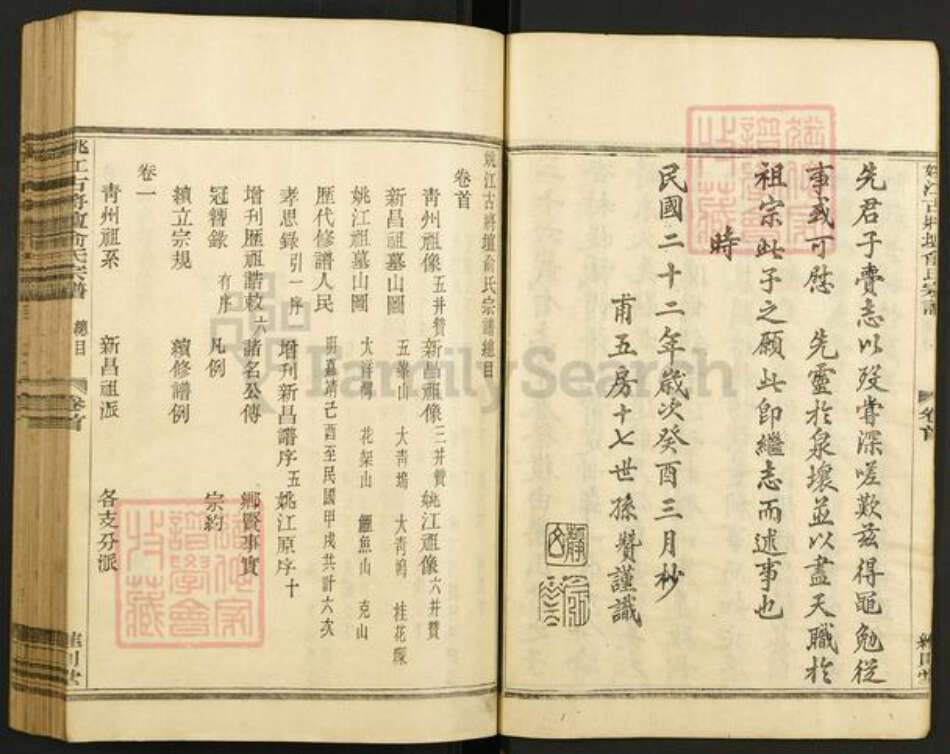 先君子賷志以歿嘗深嗟歎茲得黽勉從
事或可慰　先靈於泉壤並以盡天職於
祖宗此子之願此卽繼志而述事也
時
民國二十二年歲次癸酉三月杪
甫五房十七世孫贊謹識
卷首
姚江古將壇俞氏宗譜總目
卷首
青州祖像五并贊　新昌祖像三并贊　姚江祖像六并贊
新昌祖墓山圖　五峯山　大靑塢　大靑塢　桂花琛
姚江祖墓山圖　大祥隝　花架山　鱷魚山　克山
歷代修譜人民　明嘉靖己酉至民國甲戌共計六次
孝思錄引一序一　增刊新昌譜序五　姚江原序十
增刊歷祖誥敕六　諸名公傳　鄉賢事實
冠簪錄有序　凡例　宗約
續立宗規　續修譜例
卷一
靑州祖系　新昌祖派　各支分派
姚江古將壇俞氏宗譜　總目　卷首
FamilySearch